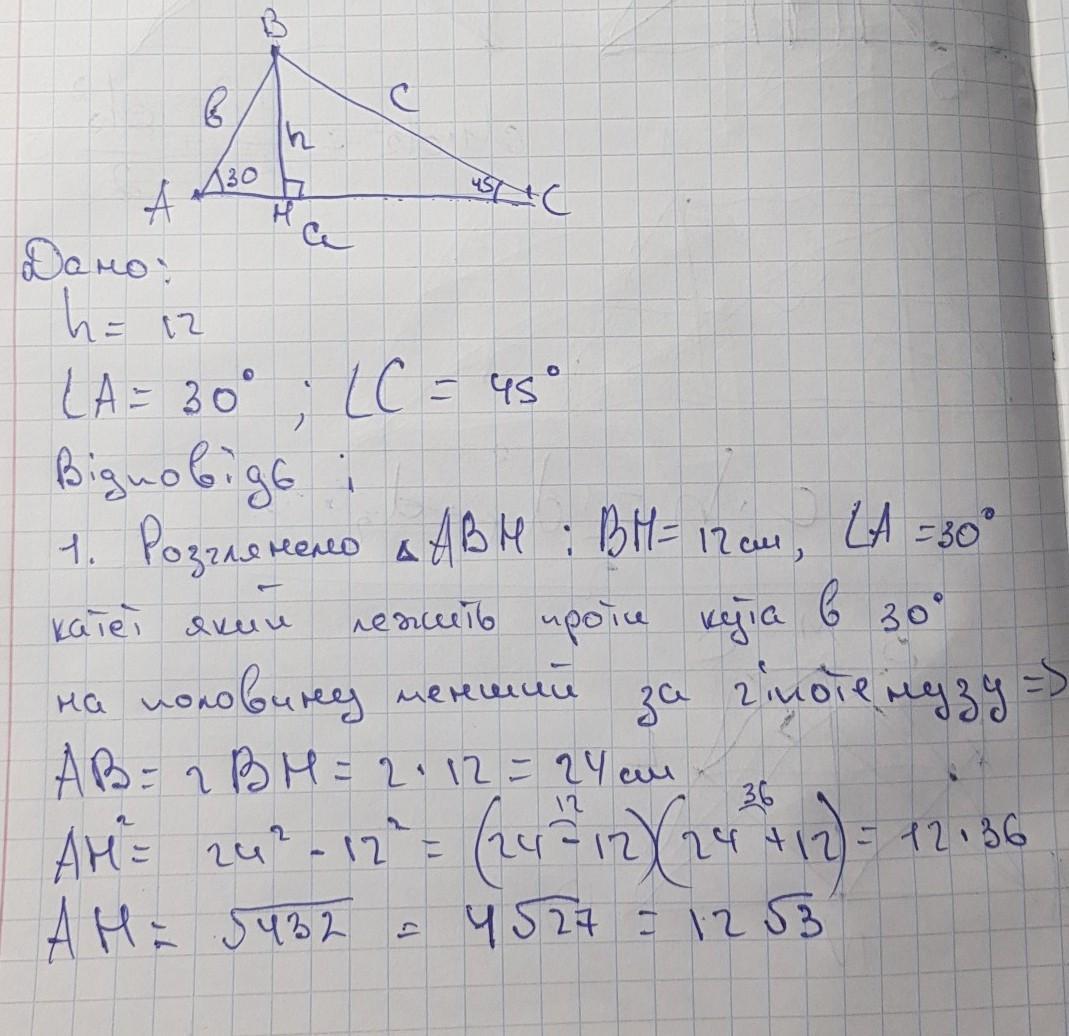 B
в
c
h
A
30
45
C
H
a
Дано:
h = 12
∠A = 30° ; ∠C = 45°
Відповідь :
1. Розглянемо △ABH : BH = 12 см, ∠A = 30°
катет який лежить проти кута в 30°
на половину менший за гіпотенузу =>
AB = 2BH = 2 · 12 = 24 см
12 36
AH² = 24² - 12² = (24 - 12)(24 + 12) = 12 · 36
AH = √432 = 4√27 = 12√3